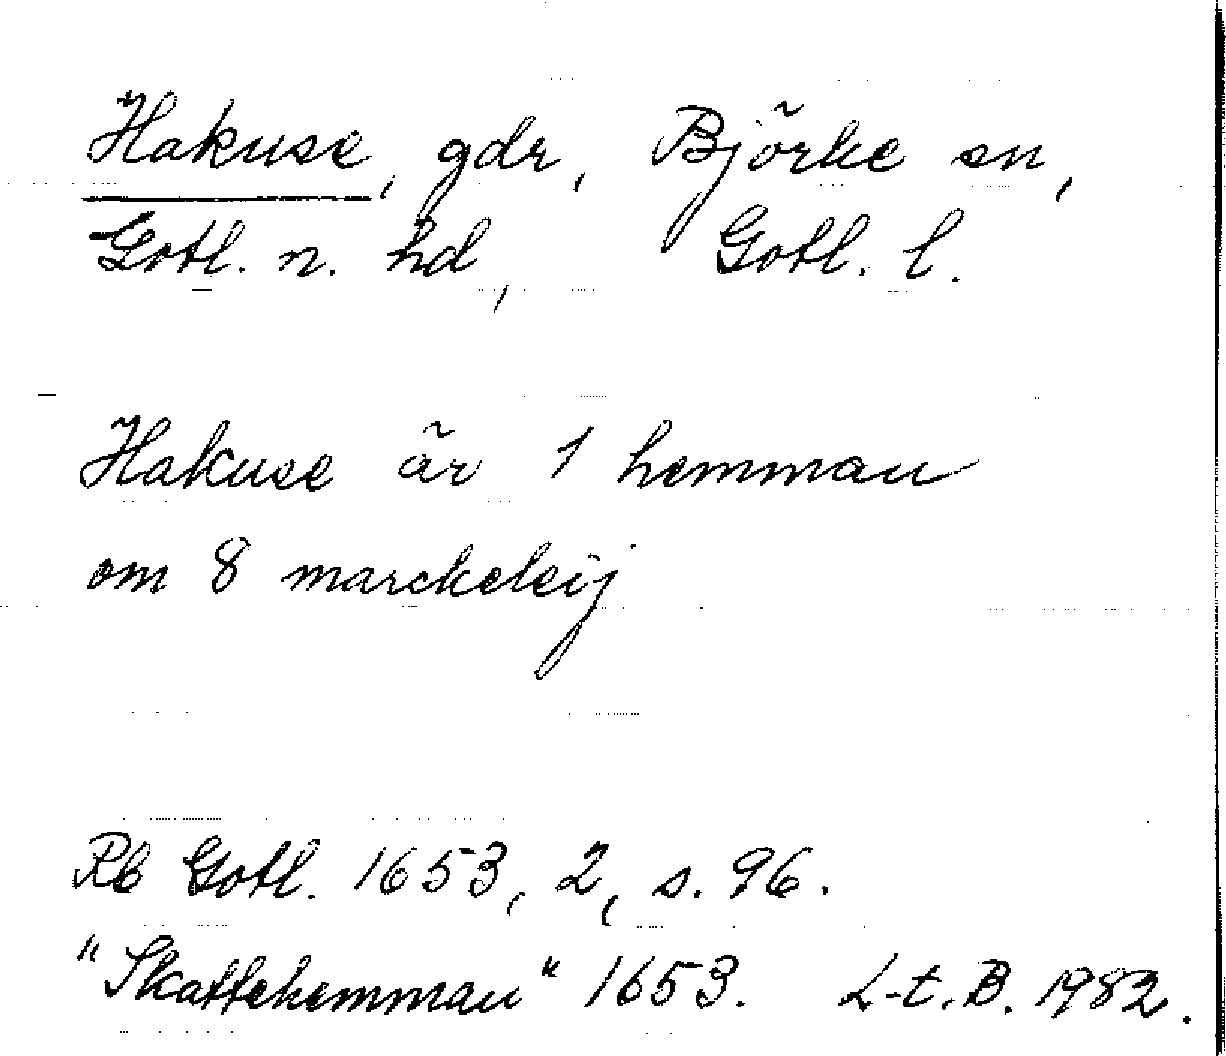 Hakuse, gdr, Björke sn,
Gotl. n. hd, Gotl. l.
Hakuse är 1 hemman
om 8 marckeleij
Rb Gotl. 1653, 2, s. 96.
"Skattehemman" 1653. L-t. B. 1982.